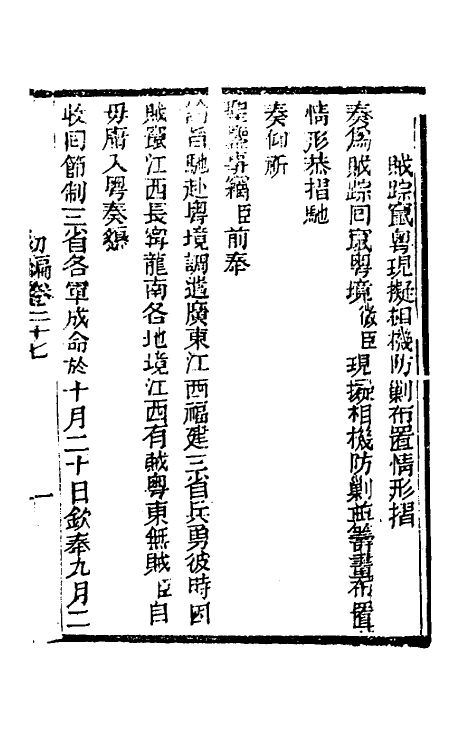 賊踪竄粵現擬相機防剿布置情形摺
奏為賊踪回竄粵境微臣現擬相機防剿並籌畫布置
情形恭摺馳
奏仰祈
聖鑒事竊臣前奉
諭旨馳赴粵境調遣廣東江西福建三省兵勇彼時因
賊竄江西長寗龍南各地境江西有賊粵東無賊臣自
毋庸入粵奏懇
收回節制三省各軍成命於十月二十日欽奉九月二
初編卷二十七
一